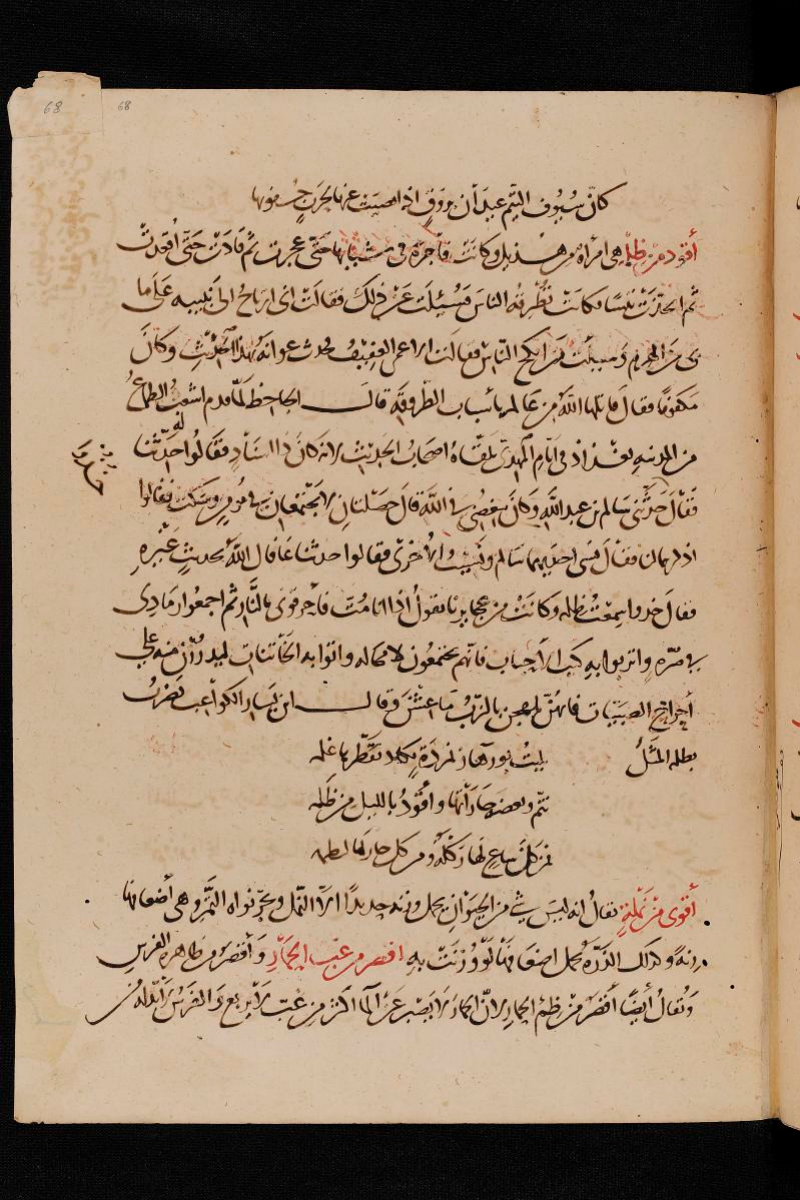 68
68
كان سيوف التيم عيدان بروق اذا نضيت عنها لحرب جفونها
أقود من ظلمة هى امرأة من هذيل وكانت فاجرة فى شبابها حتى عجزت ثم قادت حتى أقعدت
ثم اتخذت تيسا فكانت تطرقه الناس فسئلت عن ذلك فقالت انى ارتاح الى نبيبه على ما
بى من الهرم وسئلت من انكح الناس فقالت الاعمى العفيف فحدث عوانة بهذا الحديث وكان
مكفوفا فقال قاتلها الله من عالمة باسباب الطروقة قال الجاحظ لما قدم اشعب الطماع
من المدينة بغداد فى ايام المهدى تلقاه اصحاب الحديث لانه كان ذا اسناد فقالوا له حدثنا
فقال حدثنى سالم بن عبد الله وكان يبغضنى فى الله قال خصلتان لا تجتمعان فى مؤمن وسكت فقالوا
اذكرهما فقال نسى احديهما سالم ونسيت الاخرى فقالوا حدثنا عافاك الله بحديث غيره
فقال خذوا سمعت ظلمة وكانت من عجائزنا تقول اذا انا مت فأحرقونى بالنار ثم اجمعوا رمادى
فى صرة واتربوا به كتب الاحباب فانهم يجتمعون لا محالة واتوا به الخاتنات ليذررن منه على
أحراح الصبيات فانهن يلهجن بالزب ما عشن وقال ابن يسار الكواعب تضرب
بظلمة المثل
بليت بورهاء زنمردة تكاد تقطرها غلمه
تنم وتعضه جاراتها واقود بالليل من ظلمه
فمن كل ساع لها ركلة ومن كل جار لها لطمه
أقوى من نملة يقال انه ليس شئ من الحيوان يحمل وزنه حديدا الا النمل وتجر نواة التمر وهى أضعافها
زنة وكذلك الذرة تحمل اضعافها لو وزنت به اقصر من غب الحمار وأقصر من ظاهرة الفرس
ويقال أيضا أقصر من ظمئ الحمار لان الحمار لا يصبر عن الما اكثر من غب لا يربع والفرس لا بد له من